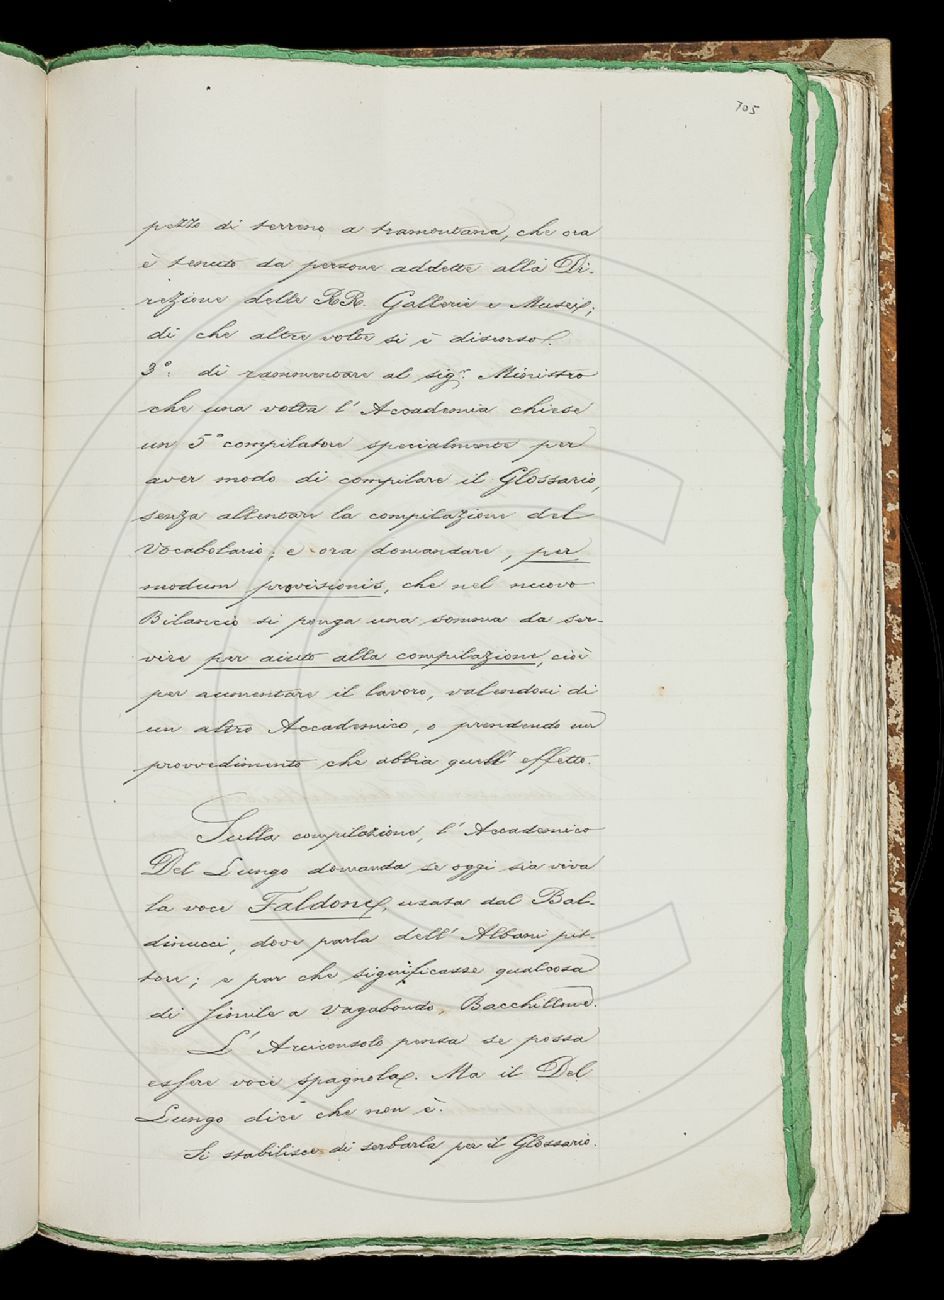 705
pezzo di terreno a tramontana, che ora
è tenuto da persone addette alla Di-
rezione delle RR. Gallerie e Musei;
di che altre volte si è discorso.
3º. di rammentare al sigr. Ministro
che una volta l'Accademia chiese
un 5º compilatore specialmente per
aver modo di compilare il Glossario,
senza allentare la compilazione del
Vocabolario; e ora domandare, per
modum provisionis, che nel nuovo
Bilancio si ponga una somma da ser-
vire per aiuto alla compilazione, cioè
per aumentare il lavoro, valendosi di
un altro Accademico, o prendendo un
provvedimento che abbia quell'effetto.
Sulla compilazione, l'Accademico
Del Lungo domanda se oggi sia viva
la voce Faldone, usata dal Bal-
dinucci, dove parla dell'Albani pit-
tore; e par che significasse qualcosa
di simile a Vagabondo, Bacchillone.
L'Arciconsolo pensa se possa
essere voce spagnola. Ma il Del
Lungo dice che non è.
Si stabilisce di serbarla per il Glossario.